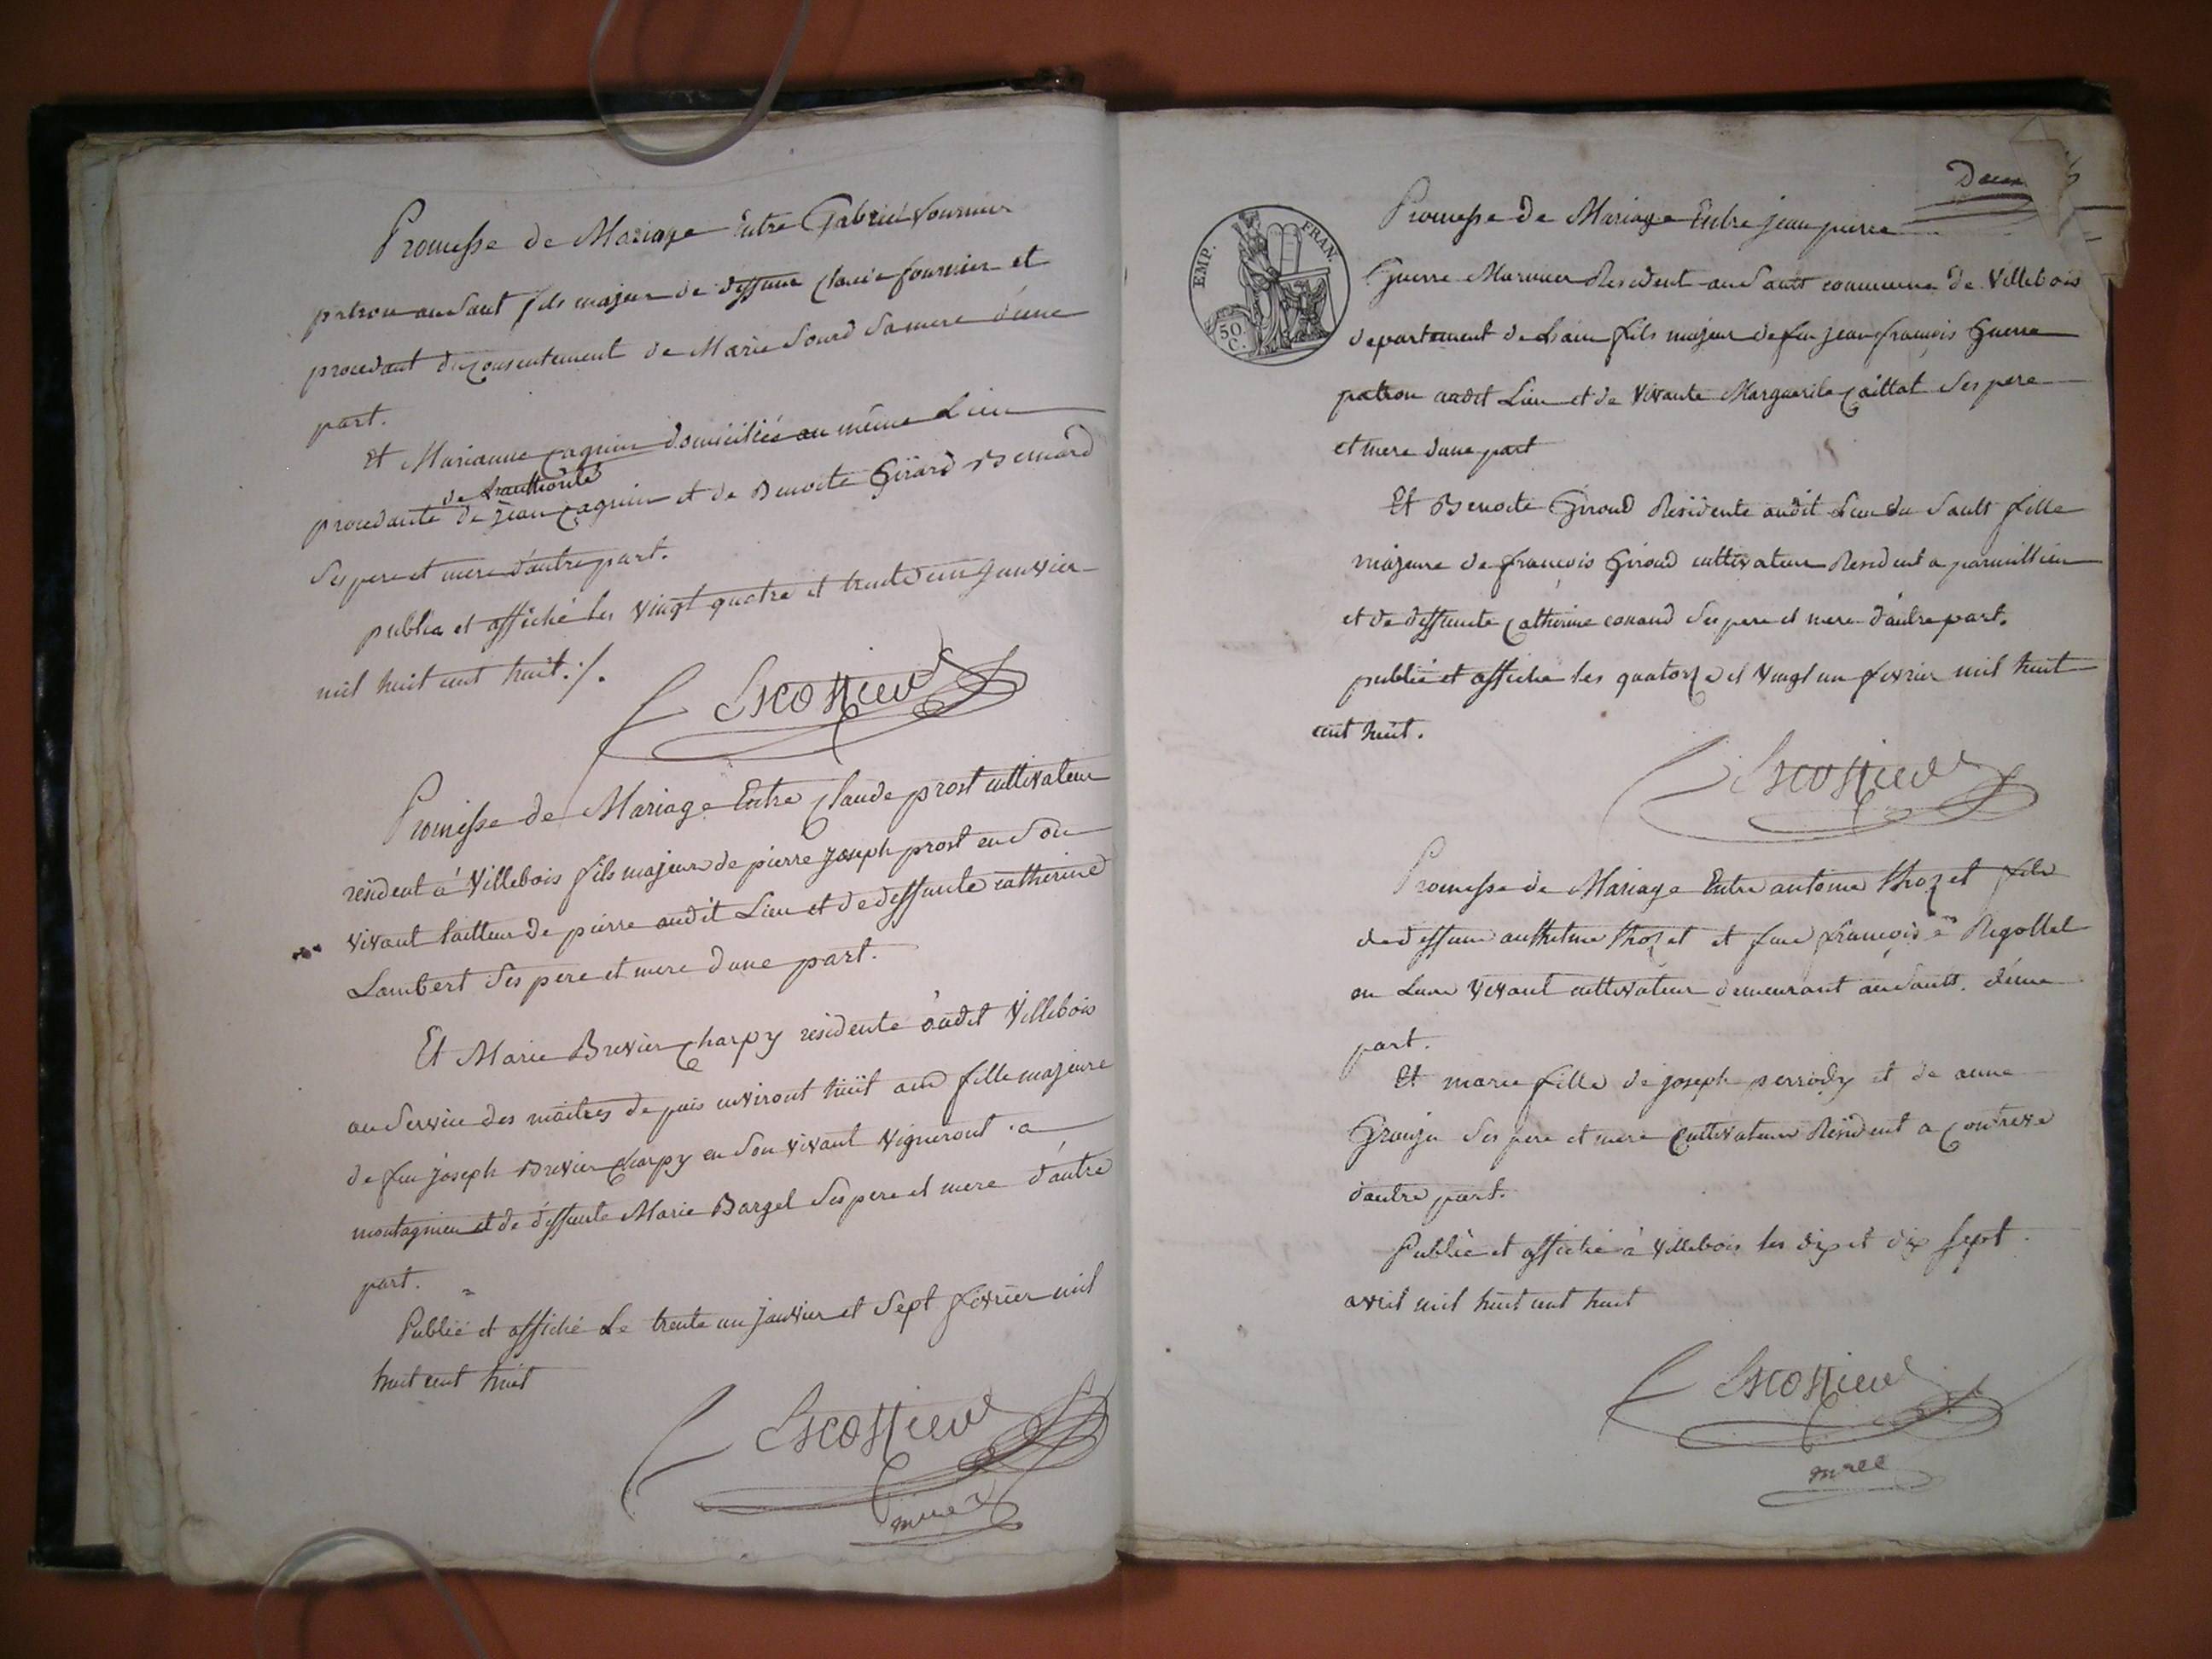 Promesse de Mariage Entre Gabriel fournier
patron au Saut fils majeur de deffunt Claude fournier et
procedant du consentement de Marie Sourd Sa mere d'une
part.
Et Marianne Cagnin domiciliée au même Lieu
de Lauthorité
procedante de jean Cagnin et de Benoite Girard Bernard
Ses pere et mere d'autre part.
publié et affiché les vingt quatre et trente un janvier
mil huit cent huit ./.
Escossieux
Promesse de Mariage Entre Claude prost cultivateur
résident à Villebois fils majeur de pierre joseph prost en Son
vivant tailleur de pierre audit Lieu et de deffunte catherine
Lambert Ses pere et mere d'une part.
Et Marie Brevier Charpy résidente audit Villebois
au Service des maîtres depuis environt huit ans fille majeure
de feu joseph Brevier Charpy en Son vivant Vigneront a
montagnieu et de deffunte Marie Bargel Ses pere et mere d'autre
part.
Publié et affiché Le trente un janvier et Sept fevrier mil
huit cent huit
Escossieux
mre
Deux
Promesse de Mariage Entre jean pierre
Guerre Marinier Resident au Sault commune de Villebois
departement de Lain fils majeur de feu jean françois Guerre
patron audit Lieu et de vivante Marguerite Caillat Ses pere
et mere d'une part
Et Benoite Giroud Résidente audit Lieu du Sault fille
majeure de françois Giroud cultivateur Resident a parmillieu
et de deffunte Catherine conand Ses pere et mere d'autre part.
publié et affiché les quatorze et vingt un fevrier mil huit
cent huit.
Escossieux
EMP. FRAN.
50 C.
Promesse de Mariage Entre antoine throzet fils
de deffunt anthelme throzet et feue françoise Rigollet
en Leur vivant cultivateur demeurant au Sault d'une
part.
Et marie fille de joseph perrody et de anne
Ses pere et mere Cultivateur Résident a
d'autre part.
Publié et affiché à Villebois les dix et dix sept
avril mil huit cent huit
Escossieux
mre